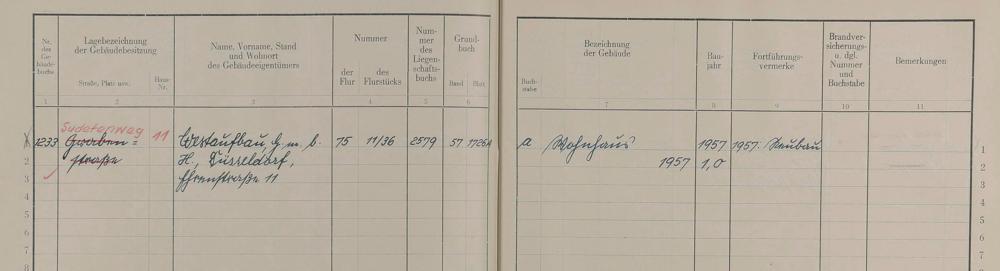 Nr. des Ge- bäude- buchs
Lagebezeichnung der Gebäudebesitzung
Straße, Platz usw.
Haus- Nr.
Name, Vorname, Stand und Wohnort des Gebäudeeigentümers
Nummer
der Flur
des Flurstücks
Num- mer des Liegen- schafts- buchs
Grund- buch
Band
Blatt
1 2 3 4 5 6
Sudetenweg 11
1233 Graben= Westaufbau, G. m. b. 75 11/36 2579 57 1726A
2 straße H., Düsseldorf,
3 Ehrenstraße 11
4
5
6
7
8
Buch- stabe
Bezeichnung der Gebäude
Bau- jahr
Fortführungs- vermerke
Brandver- sicherungs- u. dgl. Nummer und Buchstabe
Bemerkungen
7 8 9 10 11
a Wohnhaus 1957 1957: Neubau 1
1957 1,0 2
3
4
5
6
7